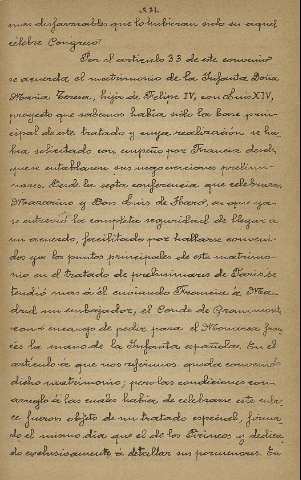 mas desfavorables que lo hubieran sido en aquel
célebre Congreso.
Por el artículo 33 de este convenio
se acuerda el matrimonio de la Infanta Doña
María Teresa, hija de Felipe IV, con Luis XIV,
proyecto que sabemos había sido la base prin-
cipal de este tratado y cuya realización se ha
bía solicitado con empeño por Francia desde
que se entablaron sus negociaciones prelimi-
nares. Desde la sexta conferencia que celebraron
Mazarino y Don Luis de Haro, en que ya
se entrevió la completa seguridad de llegar a
un acuerdo, facilitado por hallarse conveni-
dos ya los puntos principales de este matrimo-
nio en el tratado de preliminares de París, se
tendió mas á él enviando Francia á Ma-
drid un embajador, el Conde de Grammont,
con encargo de pedir para el Monarca fran
cés la mano de la Infanta española. En el
artículo á que nos referimos queda convenido
dicho matrimonio; pero las condiciones con
arreglo á las cuales había de celebrarse este enla-
ce fueron objeto de un tratado especial, firma
do el mismo día que el de los Pirineos y dedica
do exclusivamente á detallar sus pormenores. En